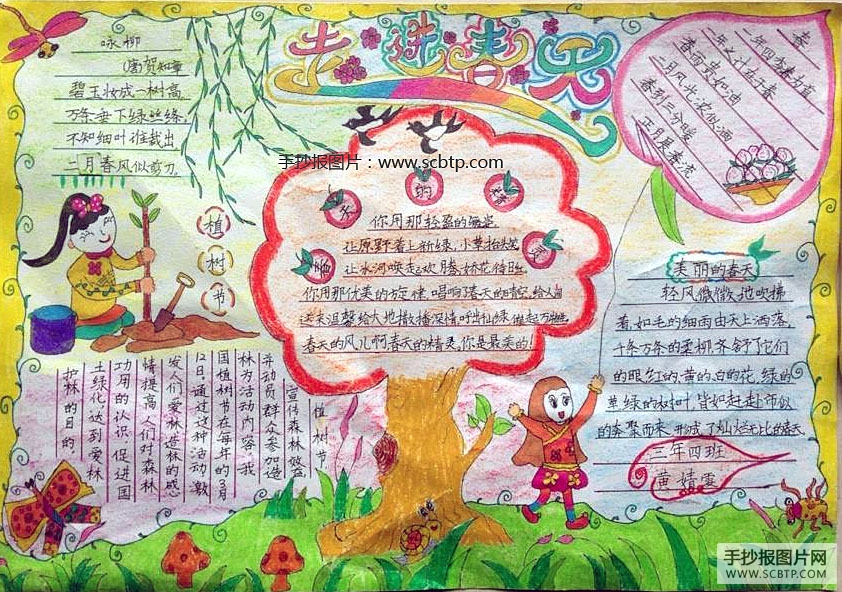 走进春天
咏柳
(唐)贺知章
碧玉妆成一树高,
万条垂下绿丝绦,
不知细叶谁裁出,
二月春风似剪刀。
手抄报图片：www.scbtp.com
植
树
节
春
一年四季春为首
一年之计在于春
春雨贵如油
二月风光浓似酒
春到三分暖
正月
你用那轻盈的
让原野着上新绿,小草抬头笑
让冰河唤起欢腾,娇花待
你用那优美的旋律,唱响春天的
送来温馨给大地撒播深情呼出
春天的风儿啊春天的精灵,你是最美的!
美丽的春天
轻风微微地吹拂
着,如毛的细雨由天上洒落,
千条万条的柔柳,齐舒了它们
的眼,红的,黄的,白的花,绿的
草,绿的树叶,皆如赶赴市似
的奔聚而来,形成了灿烂无比的春天
三年四班
黄婧雯
植树节
宣传森林效益
并动员群众参加造
林为活动内容。我
国植树节在每年的3月
12日,通过这种活动,激
发人们爱林造林的感
情,提高人们对森林
功用的认识,促进国
土绿化,达到爱林
护林的目的
手抄报图片网
WWW.SCBTP.COM